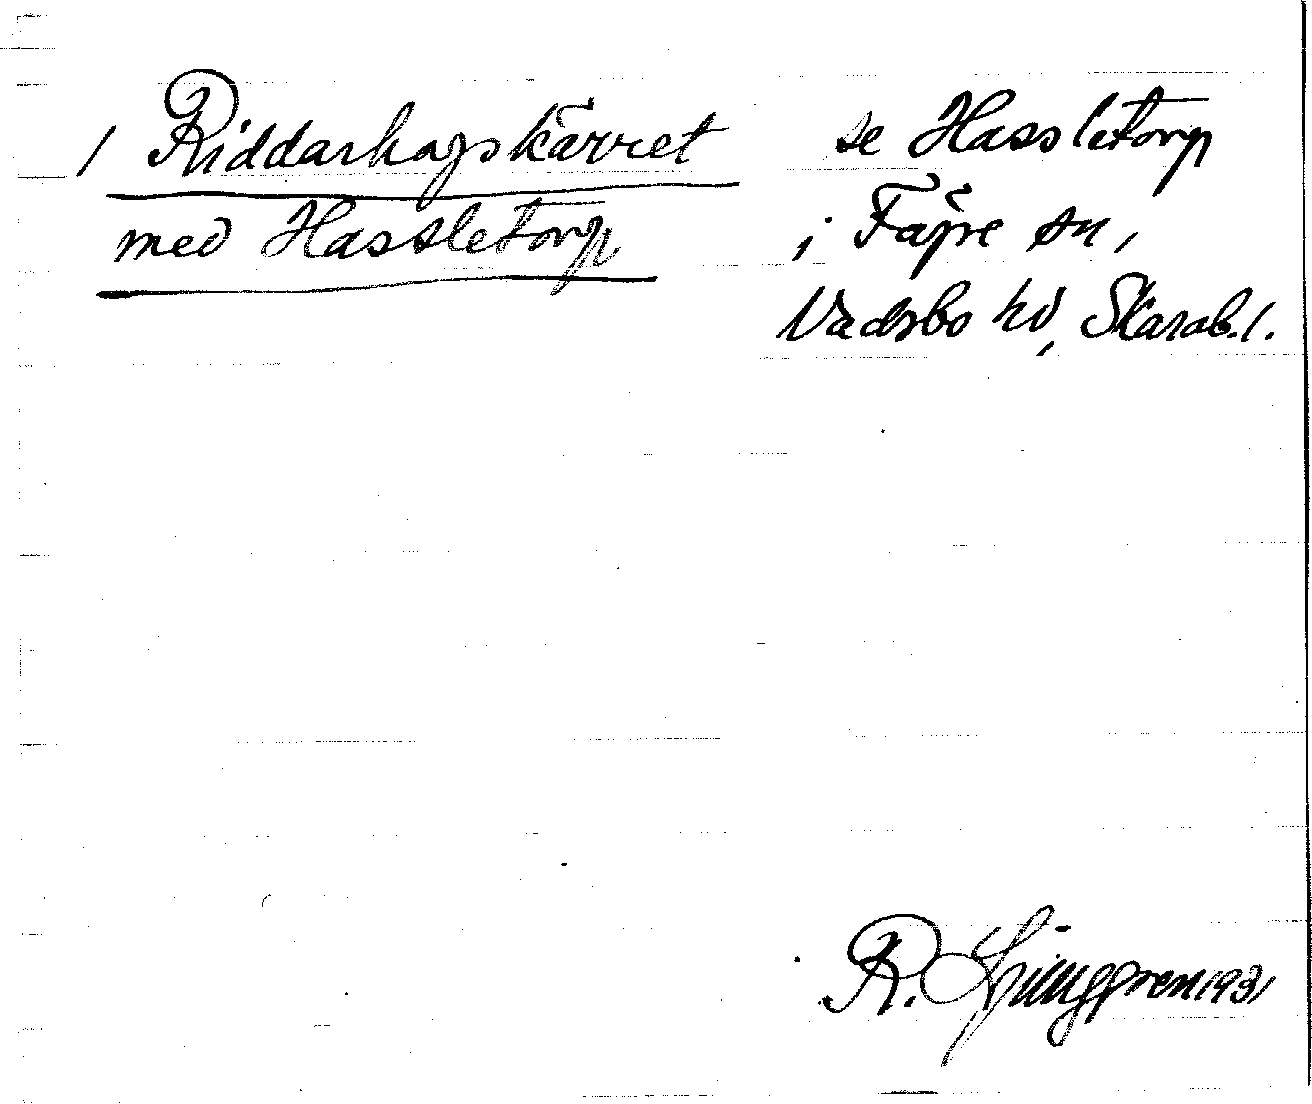 / Riddarhagskärret
med Hassletorp
se Hassletorp
i Fägre sn,
Vadsbo hd, Skarab. l.
R. Ljunggren 1931